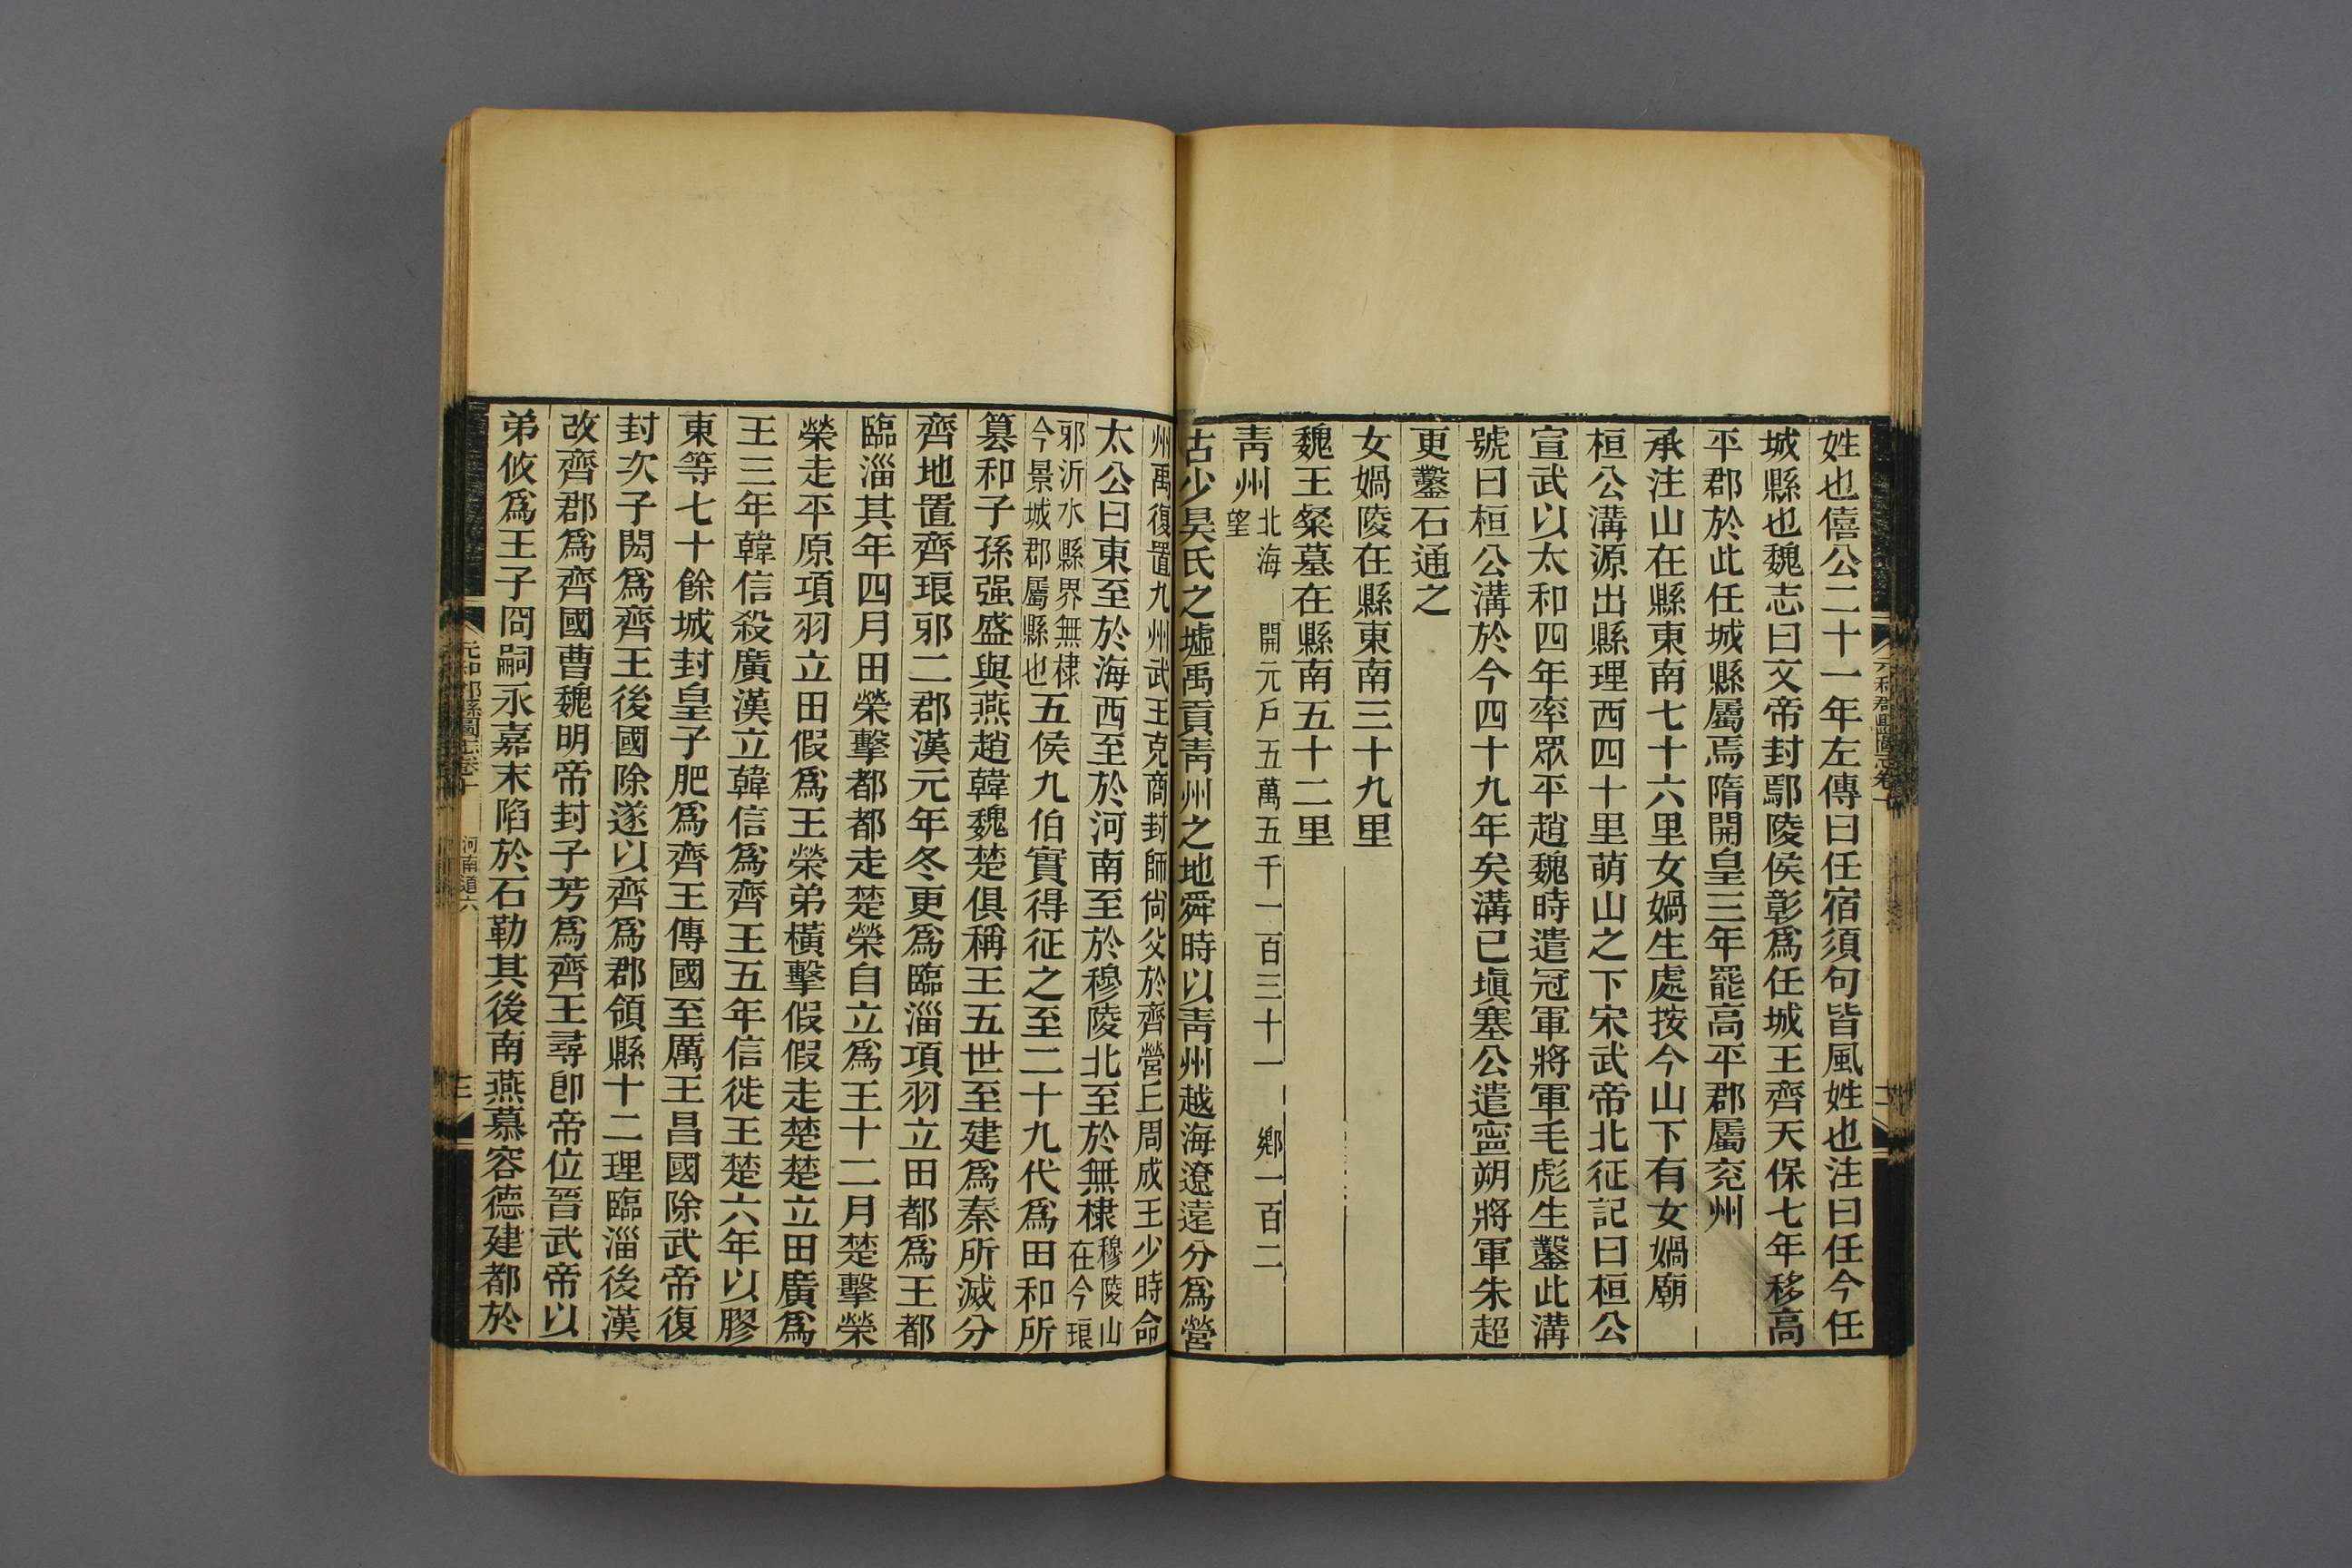 姓也僖公二十一年左傳曰任宿須句皆風姓也注曰任今任
城縣也魏志曰文帝封鄢陵侯彰爲任城王齊天保七年移高
平郡於此任城縣屬焉隋開皇三年罷高平郡屬兖州
承注山在縣東南七十六里女媧生處按今山下有女媧廟
桓公溝源出縣理西四十里萌山之下宋武帝北征記曰桓公
宣武以太和四年率眾平趙魏時遣冠軍將軍毛彪生鑿此溝
號曰桓公溝於今四十九年矣溝已塡塞公遣寧朔將軍朱超
更鑿石通之
女媧陵在縣東南三十九里
魏王粲墓在縣南五十二里
靑州北海望 開元戶五萬五千一百三十一 鄉一百二
古少昊氏之墟禹貢靑州之地舜時以靑州越海遼遠分爲營
州禹復置九州武王克商封師尙父於齊營丘周成王少時命
太公曰東至於海西至於河南至於穆陵北至於無棣穆陵山在今琅
邪沂水縣界無棣今景城郡屬縣也五侯九伯實得征之至二十九代爲田和所
簒和子孫强盛與燕趙韓魏楚俱稱王五世至建爲秦所滅分
齊地置齊琅邪二郡漢元年冬更爲臨淄項羽立田都爲王都
臨淄其年四月田榮擊都都走楚榮自立爲王十二月楚擊榮
榮走平原項羽立田假爲王榮弟橫擊假假走楚楚立田廣爲
王三年韓信殺廣漢立韓信爲齊王五年信徙王楚六年以膠
東等七十餘城封皇子肥爲齊王傳國至厲王昌國除武帝復
封次子閎爲齊王後國除遂以齊爲郡領縣十二理臨淄後漢
改齊郡爲齊國曹魏明帝封子芳爲齊王尋卽帝位晉武帝以
弟攸爲王子冏嗣永嘉末陷於石勒其後南燕慕容德建都於
元和郡縣圖志卷十 河南道六 三